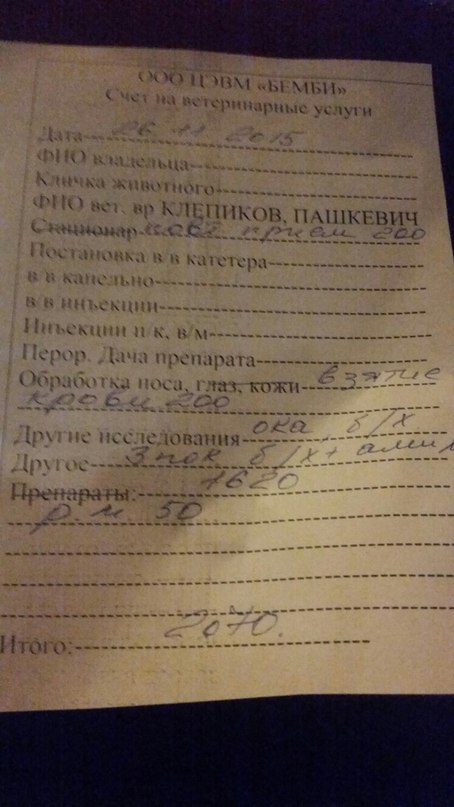 ООО ЦЭВМ «БЕМБИ»
Счет на ветеринарные услуги
Дата 26 11 2015
ФИО владельца
Кличка животного
ФИО вет. вр КЛЕПИКОВ, ПАШКЕВИЧ
Стационар прием 200
Постановка в в катетера
в в капельно
в/в инъекции
Инъекции п/к, в/м
Перор. Дача препарата
Обработка носа, глаз, кожи взятие
крови 200
Другие исследования ока, б/х
Другое 3 пок б/х+ амил
Препараты: 1620
р. м 50
Итого: 2070.